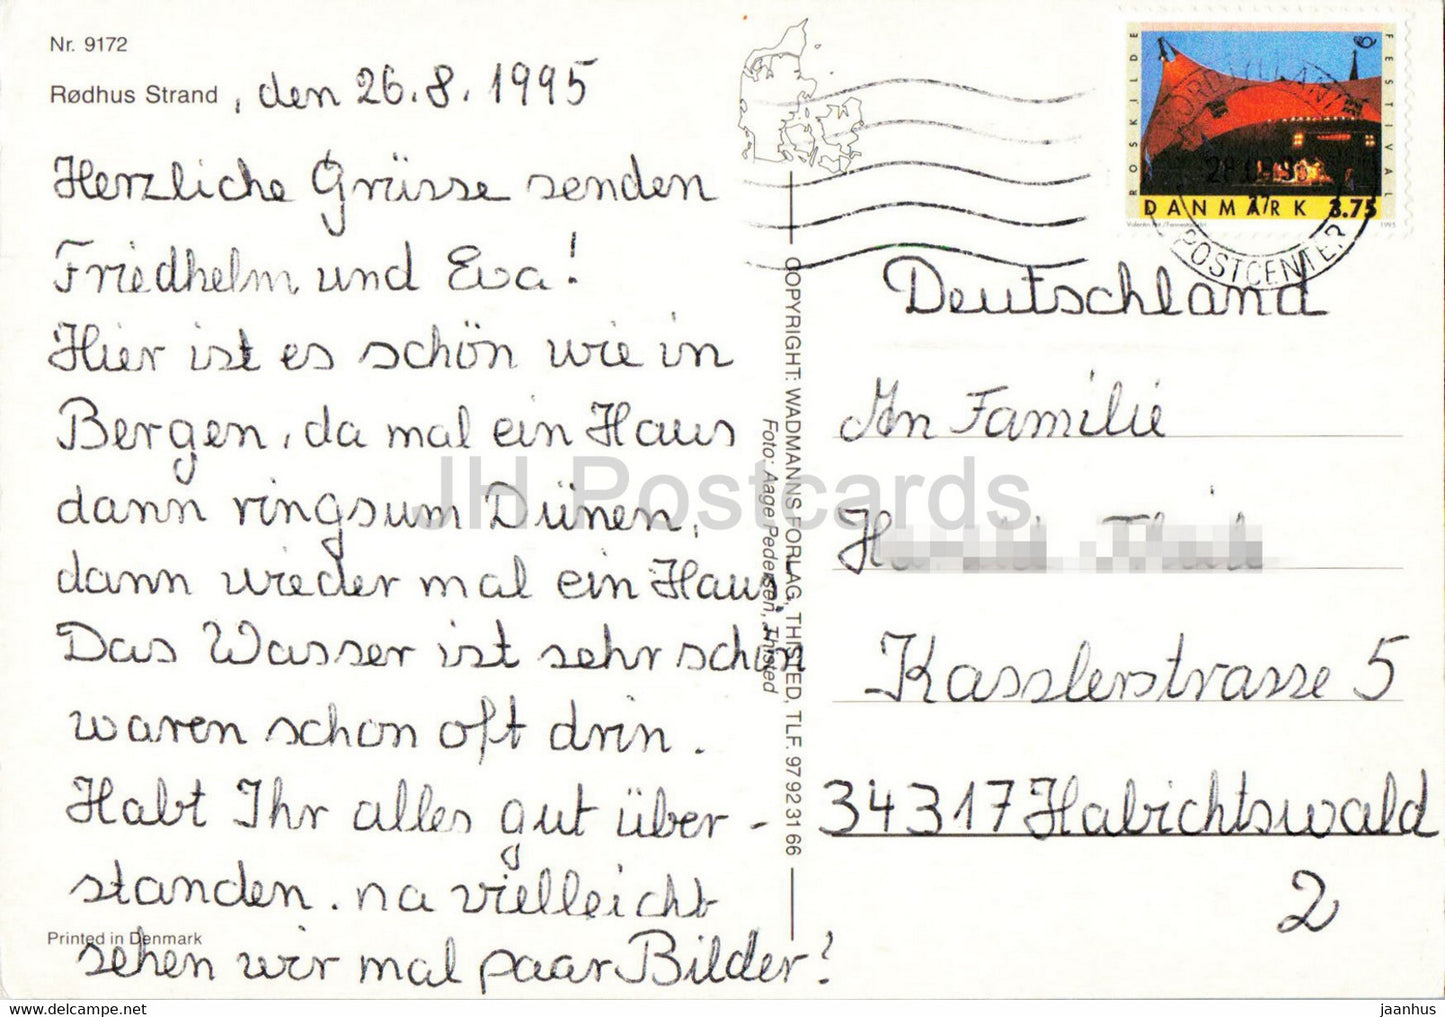 Nr. 9172
Rødhus Strand , den 26.8.1995
Herzliche Grüsse senden
Friedhelm und Eva!
Hier ist es schön wie in
Bergen, da mal ein Haus
dann ringsum Dünen,
dann wieder mal ein Haus.
Das Wasser ist sehr schön
waren schon oft drin.
Habt Ihr alles gut über-
standen. na vielleicht
sehen wir mal paar Bilder!
Printed in Denmark
COPYRIGHT: WADMANNS FORLAG, THISTED, TLF. 97 92 31 66
Foto: Aage Pedersen, Thisted
ROSKILDE
FESTIVAL
DANMARK 3.75
1995
POSTCENTER
Deutschland
An Familie
Kasslerstrasse 5
34317 Habichtswald
2
JH Postcards
oldthing.de
jaanhus